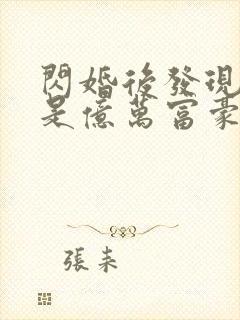 閃婚後發現
是億萬富豪
張耒